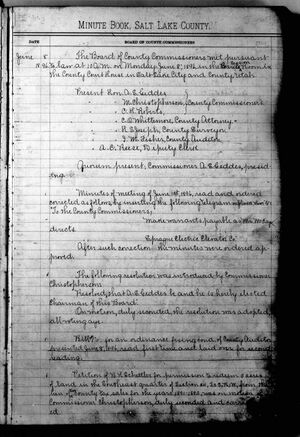 MINUTE BOOK, SALT LAKE COUNTY.
DATE
BOARD OF COUNTY COMMISSIONERS
June 8 The Board of County Commissioners met pursuant
to law at 10 A.M. on Monday June 8, 1896, in the
the County Court House in Salt Lake City and County Utah.
Present Hon. A. E. Geddes
" M. Christophersen, County Commissioners
" C. H. Roberts,
" C. B. Whittemore, County Attorney
" County Surveyor
" I. M. Fisher, County Auditor
" A. C. Reese, Deputy Clerk
Quorum present, Commissioner A. E. Geddes, presid-
ing.
Minutes of meeting of June 1st 1896, read and ordered
corrected as follows, by inserting the following telegram
To the County Commissioners;
Make warrants payable
Sprague Electric Elevator Co
After such correction the minutes were ordered ap-
proved.
The following resolution was introduced by Commissioner
Christophersen:
Resolved that A. E. Geddes be and he is hereby elected
Chairman of this Board.
On motion, duly seconded, the resolution was adopted,
all voting aye.
for an ordinance fixing bond of County Auditor
presented June 8, 1896, read first time and laid over for second
reading.
Petition of for permission to redeem
of land in the Southeast quarter of Section
of County tax sales for the years was on motion of
Commissioner Christophersen, duly seconded and carri-
ed